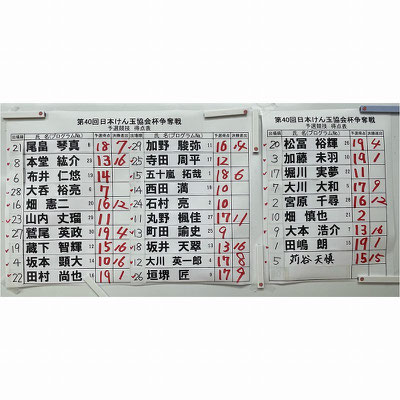 第40回日本けん玉協会杯争奪戦
予選競技 得点表
出場順 氏 名(プログラムNo.) 予選得点 決勝進出 出場順 氏 名(プログラムNo.) 予選得点 決勝進出
21 尾畠 琴真 8 18 7 29 加野 駿弥 11 16 4
8 本堂 紘介 23 13 16 25 寺田 周平 12
6 布井 仁悠 14 15 五十嵐 拓哉 18 6
28 大呑 裕亮 7 14 西田 満 10
16 畑 憲二 16 12 24 石村 亮 10
23 山内 丈瑠 11 11 丸野 楓佳 17 11
27 鷲尾 英政 19 4 13 町田 諭史 9
19 蔵下 智輝 15 16 18 坂井 天翠 13 16
4 坂本 顕大 10 16 12 大川 英一郎 17 8
22 田村 尚也 19 1 26 垣堺 匠 17 9
第40回日本けん玉協会杯争奪戦
予選競技 得点表
出場順 氏 名(プログラムNo.) 予選得点 決勝進出
20 松冨 裕輝 19 4
3 加藤 未羽 19 1
17 堀川 実夢 11
7 大川 大和 17 9
2 宮原 千尋 16 12
10 畑 慎也 2
9 大本 浩介 13 16
1 田嶋 朗 19 1
5 苅谷 天慎 15 15